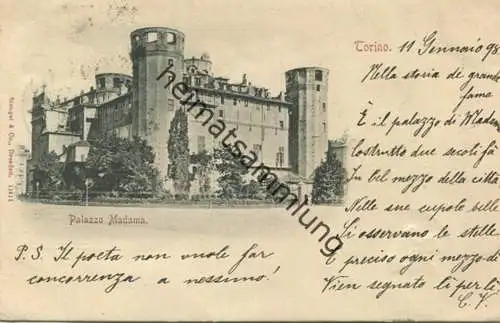 Torino. 11 Gennaio 98
Nella storia di grande
fama
È il palazzo di Madam
Costrutto due secoli fà
In bel mezzo della città
Nelle sue cupole bille
Si osservano le stelle
E preciso ogni mezzo di
Vien segnato lì per lì.
C. V.
Palazzo Madama.
P. S. Il poeta non vuole far
concorrenza a nessuno!
Stengel & Co., Dresden.
heimatsammlung.de